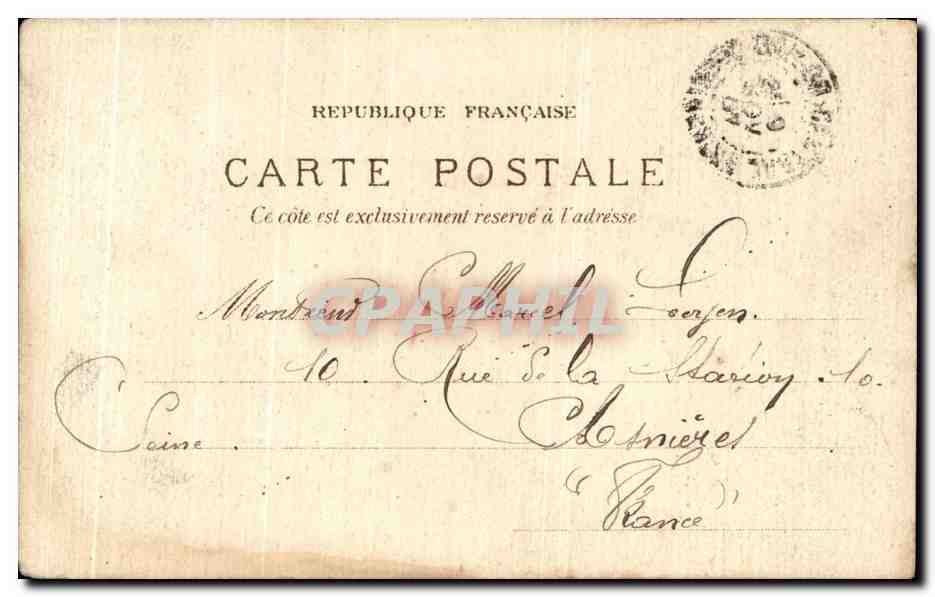 REPUBLIQUE FRANÇAISE
CARTE POSTALE
Ce côté est exclusivement reservé à l'adresse
CPAPHIL
Marcel
10. Rue de la Station. 10.
Asnières
Seine.
"France"